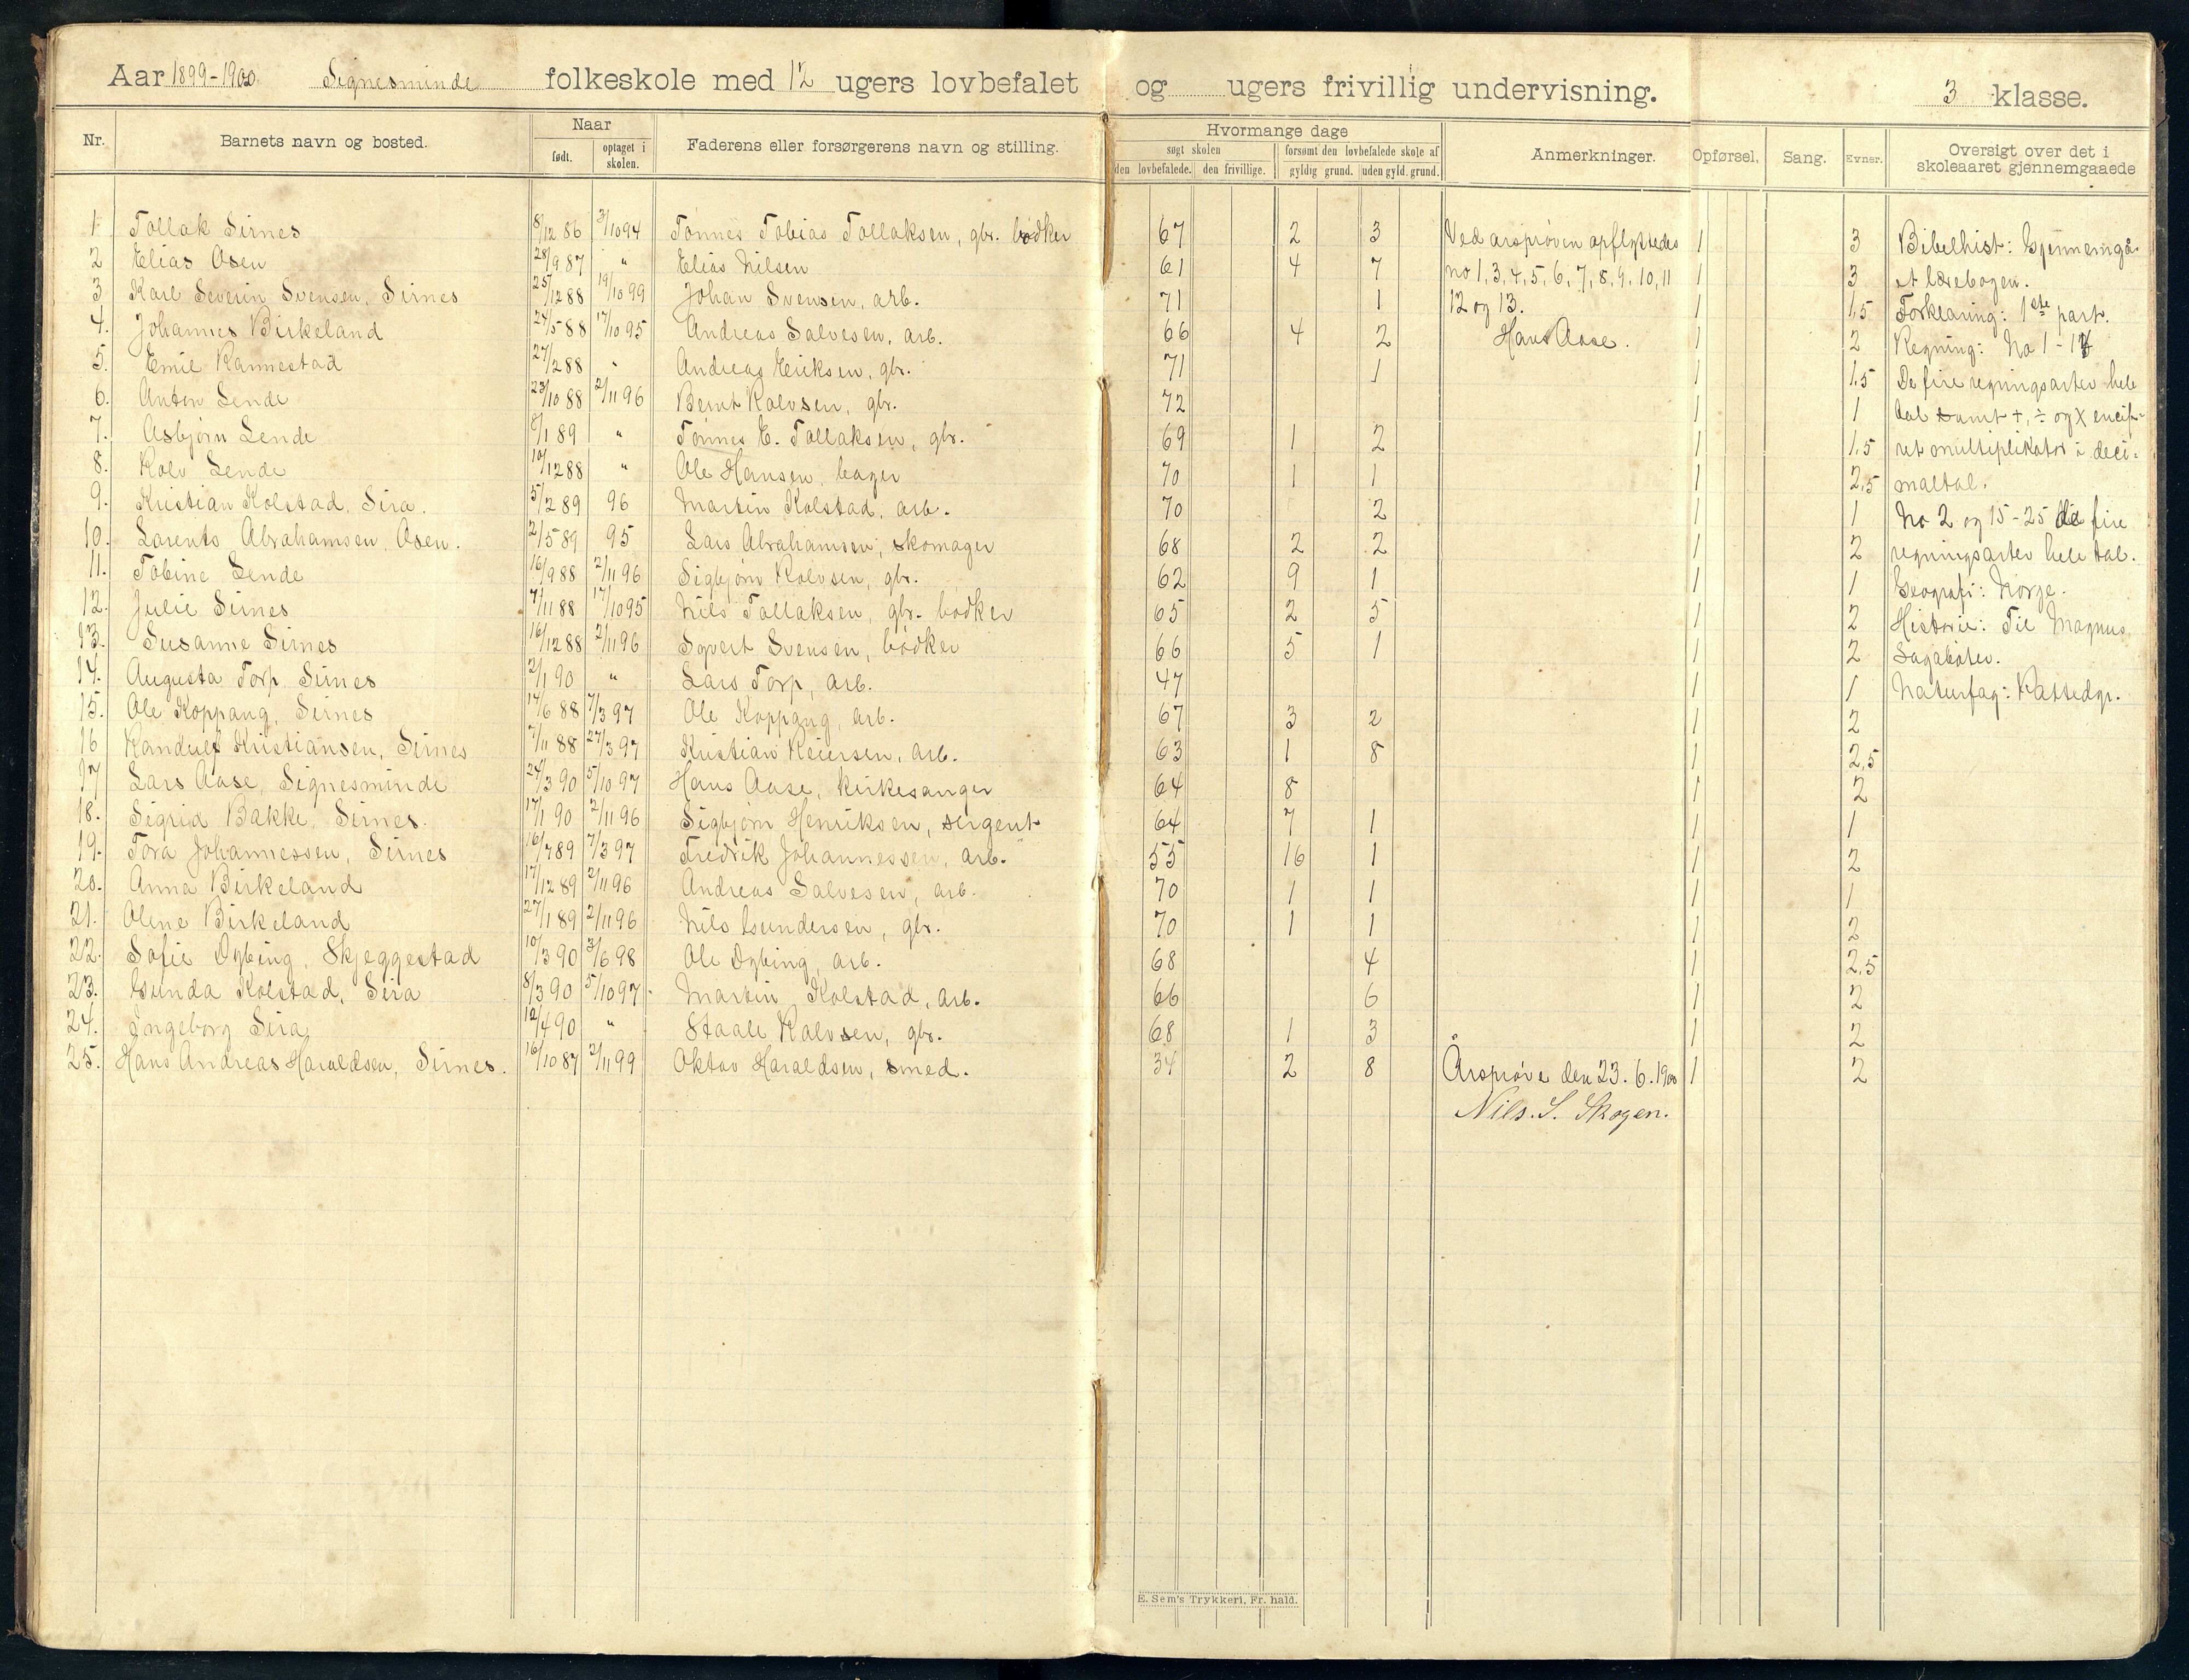 Aar 1899-1900 Signesminde folkeskole med 12 ugers lovbefalet og ugers frivillig undervisning. 3 klasse.
Nr. Barnets navn og bosted. Naar født. optaget i skolen. Faderens eller forsørgerens navn og stilling. Hvormange dage søgt skolen den lovbefalede. den frivillige. forsømt den lovbefalede skole af gyldig grund. uden gyld. grund. Anmerkninger. Opførsel. Sang. Evner. Oversigt over det i skoleaaret gjennemgaaede
1 Tollak Sirnes 8/12 86 3/10 94 Tønnes Tobias Tollaksen, gbr. bødker 67 2 3 Ved årsprøven opflyttedes 1 3 Bibelhist: Gjennemgå-
2 Elias Osen 28/9 87 " Elias Nilsen 61 4 7 no 1, 3, 4, 5, 6, 7, 8, 9, 10, 11 1 3 et læsebogen.
3 Karl Severin Svensen, Sirnes 25/12 88 19/10 99 Johan Svensen, arb. 71 1 12 og 13. 1 1,5 Forklaring: 1ste part.
4. Johannes Birkeland 24/5 88 17/10 95 Andreas Salvesen, arb. 66 4 2 Hans Aase. 1 2 Regning: No 1-
5. Emil Rannestad 27/2 88 " Andreas Eriksen, gbr. 71 1 1 1,5 De fire regningsarter hele
6. Anton Lende 23/10 88 2/11 96 Bernt Rolvsen, gbr. 72 1 1 tal samt +, ÷ og x encif-
7. Asbjørn Lende /1 89 " Tønnes E. Tollaksen, gbr. 69 1 2 1 1,5 ret multiplikator i deci-
8. Rolv Lende 10/12 88 " Ole Hansen, bager 70 1 1 1 2,5 maltal.
9. Kristian Kolstad, Sira. 5/2 89 96 Martin Kolstad, arb. 70 2 1 1 No 2 og 15-25 de fire
10. Lorents Abrahamsen, Osen. 2/5 89 95 Lars Abrahamsen, skomager 68 2 2 1 2 regningsarter hele tal.
11. Tobine Lende 16/9 88 2/11 96 Sigbjørn Rolvsen, gbr. 62 9 1 1 1 Geografi: Norge.
12. Julie Sirnes 7/11 88 17/10 95 Nils Tollaksen, gbr. bødker 65 2 5 1 2 Historie: Til Magnus
13. Susanne Sirnes 16/12 88 2/11 96 Syvert Svensen, bødker 66 5 1 1 2 Lagabøter.
14. Augusta Torp Sirnes 2/1 90 " Lars Torp, arb. 47 1 1 Naturfag: Pattedyr.
15. Ole Koppang, Sirnes 14/6 88 7/3 97 Ole Koppang, arb. 67 3 2 1 2
16 Randulf Kristiansen, Sirnes 7/11 88 27/3 97 Kristian Reiersen, arb. 63 1 8 1 2,5
17 Lars Aase, Signesminde 24/3 90 5/10 97 Hans Aase, kirkesanger 64 8 1 2
18. Sigrid Bakke, Sirnes. 17/1 90 2/11 96 Sigbjørn Henriksen, sergent 64 7 1 1 1
19. Tora Johannessen, Sirnes 16/7 89 7/3 97 Fredrik Johannessen, arb. 55 16 1 1 2
20. Anna Birkeland 17/12 89 2/11 96 Andreas Salvesen, arb. 70 1 1 1 1
21. Olene Birkeland 27/1 89 2/11 96 Nils Gundersen, gbr. 70 1 1 1 2
22. Sofie Dybing, Skjeggestad 10/3 90 3/6 98 Ole Dybing, arb. 68 4 1 2,5
23. Gunda Kolstad, Sira 8/3 90 5/10 97 Martin Kolstad, arb. 66 6 1 2
24. Ingeborg Sira 12/4 90 " Staale Rolvsen, gbr. 68 1 3 1 2
25. Hans Andreas Haraldsen, Sirnes. 16/10 87 2/11 99 Oktav Haraldsen, smed. 34 2 8 Årsprøve den 23.6.1900 1 2
Nils. S. Skogen.
E. Sem's Trykkeri, Fr. hald.